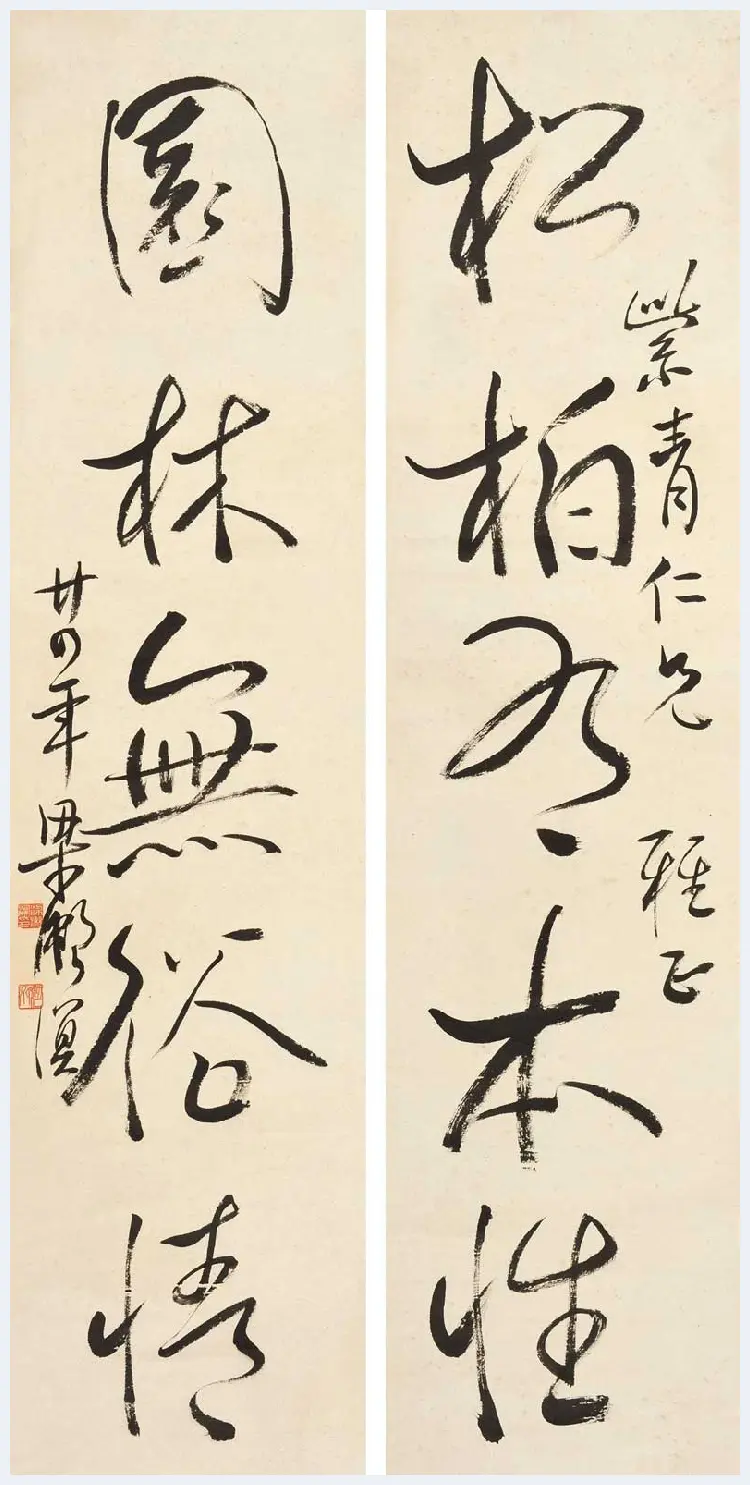 松柏有本性
紫青仁兄 雅正
園林無俗情
廿四年 梁